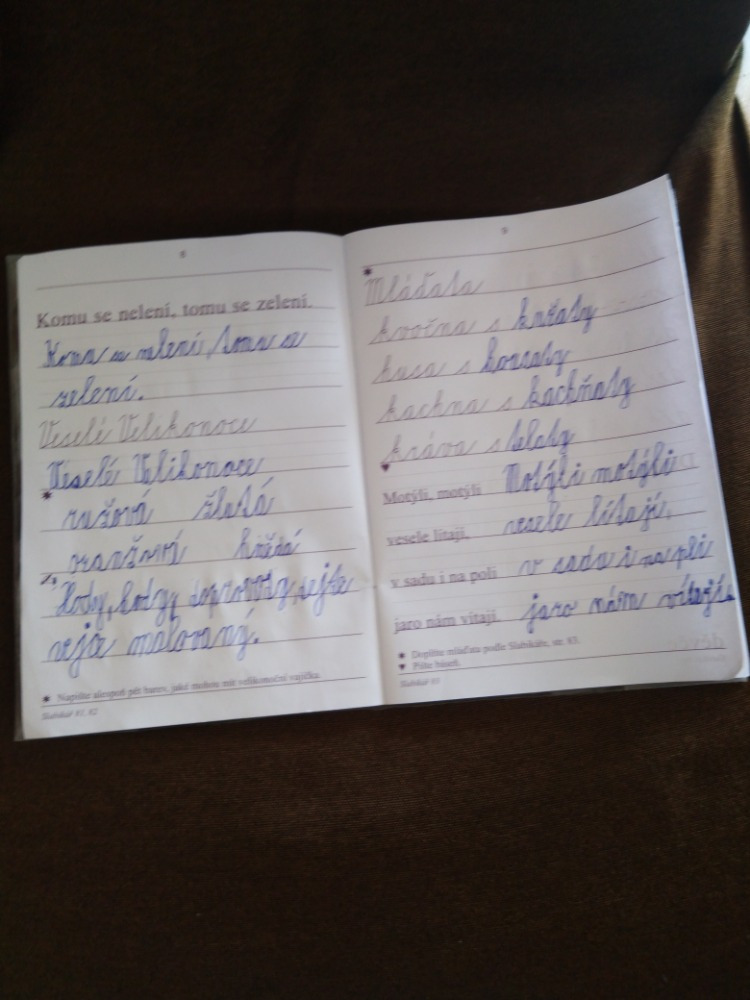 8
Komu se nelení, tomu se zelení.
Komu se nelení, tomu se
zelení.
Veselé Velikonoce
Veselé Velikonoce
* ružová žlutá
oranžová hnědá
Hody, hody, doprovody, dejte
vejce malovaný.
* Napište alespoň pět barev, jaké mohou mít velikonoční vajíčka.
Slabikář 81, 82
9
* Mláďata
kvočna s kuřaty
husa s housaty
kachna s kachňaty
kráva s telaty
♥
Motýli, motýli Motýli motýli
vesele lítají, vesele lítají,
v sadu i na poli v sadu i na pli
jaro nám vítají. jaro nám vítají
* Doplňte mláďata podle Slabikáře, str. 83.
♥ Pište báseň.
Slabikář 83